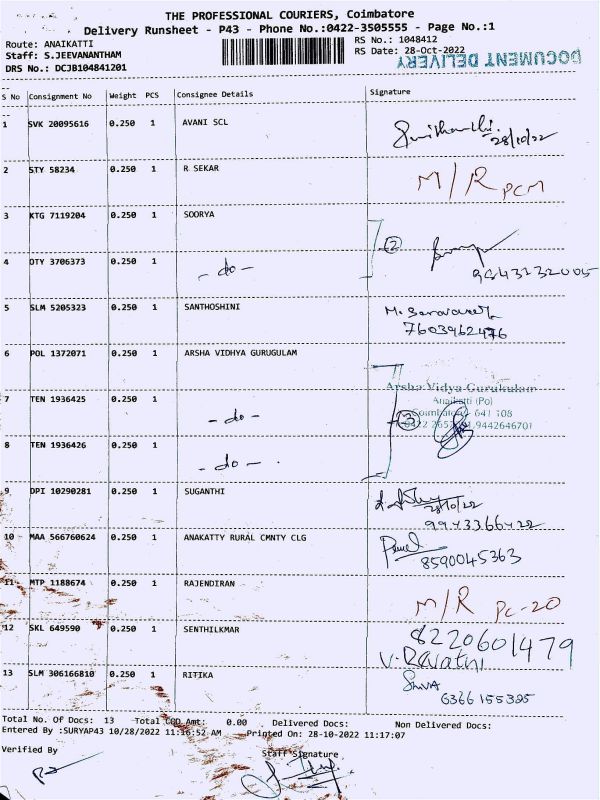 THE PROFESSIONAL COURIERS, Coimbatore
Delivery Runsheet - P43 - Phone No.:0422-3505555 - Page No.:1
Route: ANAIKATTI
RS No.: 1048412
Staff: S.JEEVANANTHAM
RS Date: 28-Oct-2022
DRS No.: DCJB104841201
DOCUMENT DELIVERY
S No Consignment No Weight PCS Consignee Details Signature
1 SVK 20095616 0.250 1 AVANI SCL 28/10/22
2 STY 58234 0.250 1 R SEKAR M/R PCM
3 KTG 7119204 0.250 1 SOORYA 2
4 OTY 3706373 0.250 1 - do - 9843232005
5 SLM 5205323 0.250 1 SANTHOSHINI
7603962476
6 POL 1372071 0.250 1 ARSHA VIDHYA GURUGULAM
Arsha Vidya Gurukulam
7 TEN 1936425 0.250 1 - do - Anaikatti (Po)
Coimbatore - 641 108
3 9442646701
8 TEN 1936426 0.250 1 - do -
9 DPI 10290281 0.250 1 SUGANTHI 28/10/22
9943366422
10 MAA 566760624 0.250 1 ANAKATTY RURAL CMNTY CLG
8590045363
11 MTP 1188674 0.250 1 RAJENDIRAN M/R PC-20
12 SKL 649590 0.250 1 SENTHILKMAR 8220601479
V. Revathi
13 SLM 306166810 0.250 1 RITIKA SHIVA
6366155395
Total No. Of Docs: 13 Total COD Amt: 0.00 Delivered Docs: Non Delivered Docs:
Entered By :SURYAP43 10/28/2022 11:16:52 AM Printed On: 28-10-2022 11:17:07
Verified By Staff Signature